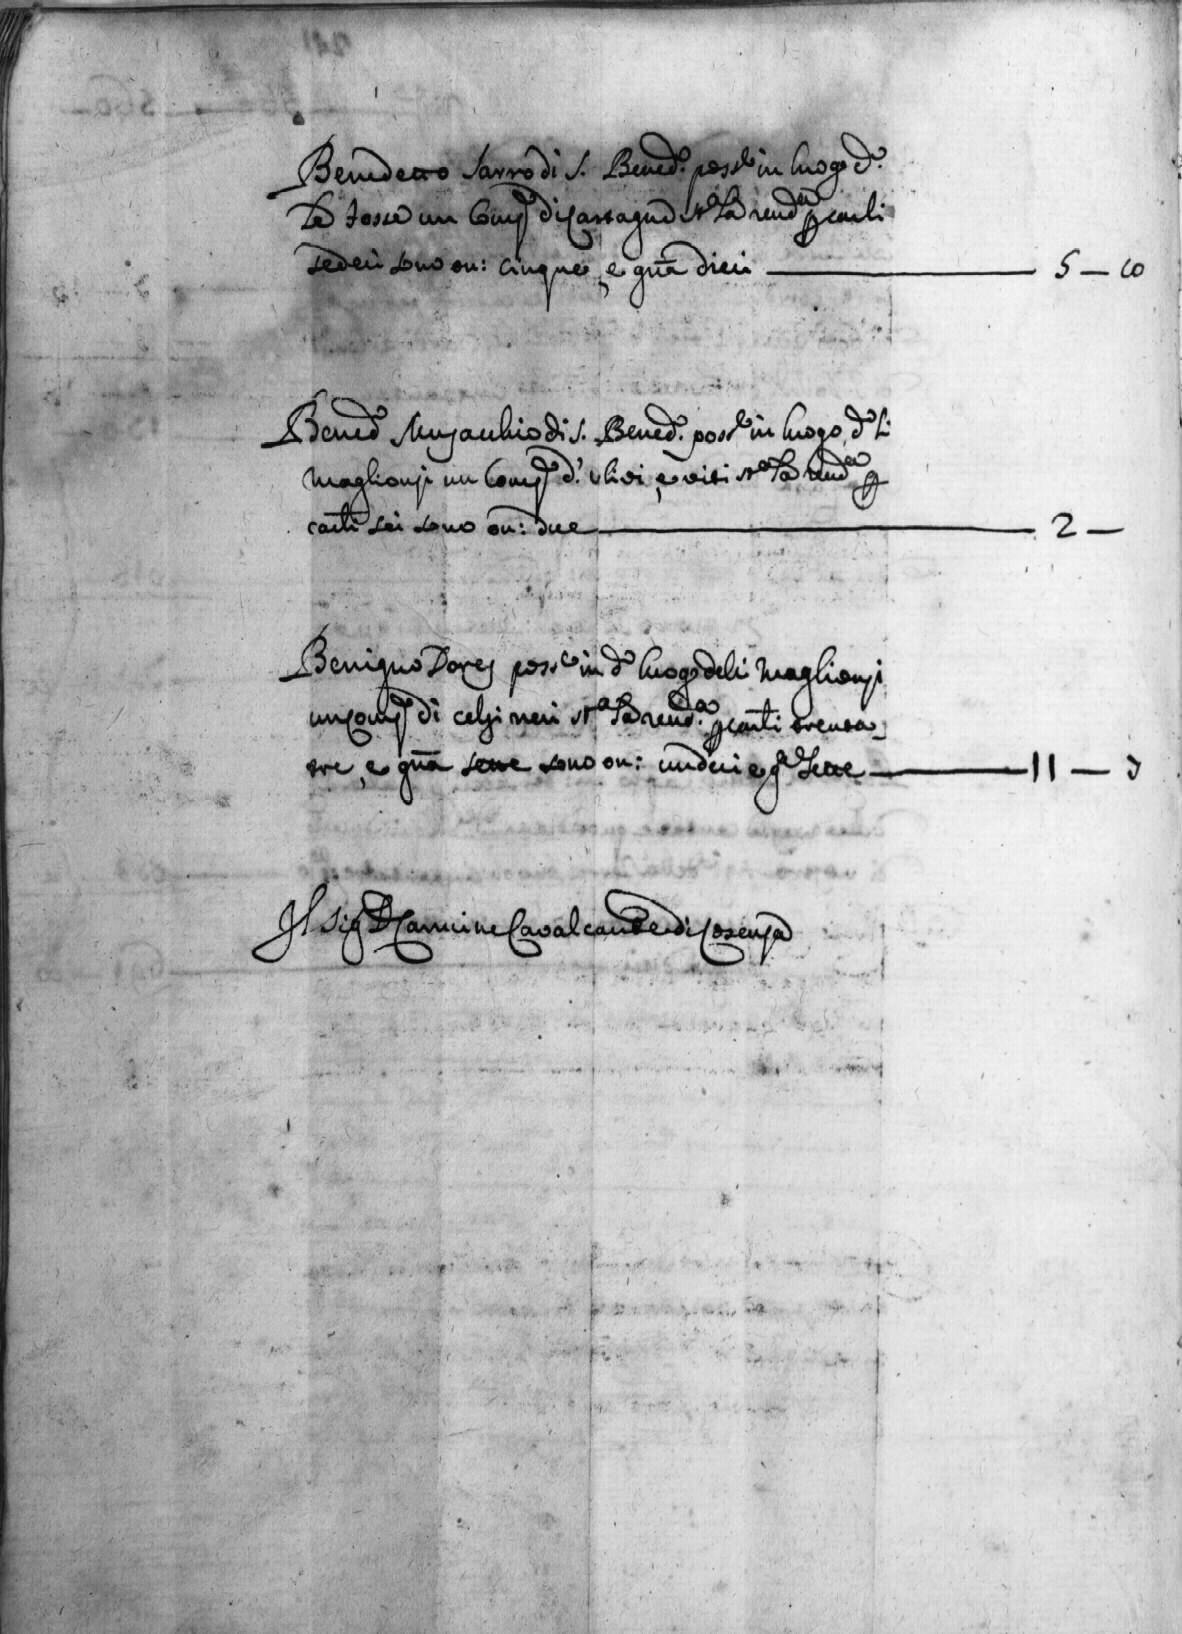 Benedetto Sarro di S. Bened.º poss.e in luogo d.º
Le fosse un Comp.º di Castagne st.ª la rend.ª p carli
sedeci sono on: cinque, e gña dieci — 5 — 10
Bened.º Musacchio di S. Bened.º poss.e in luogo d.º li
Maglionji un Comp.º d'ulivi, e viti st.ª la rend.ª p
carli sei sono on: due — 2 —
Benigno Dorsj poss.e in d.º luogo deli Maglionji
un Comp.º di celzi neri st.ª la rend.ª p carli trenta
tre, e gña sette sono on: undeci e g.ª sette — 11 — 7
Il Sig.r D. Carmine Cavalcante di Cosenza